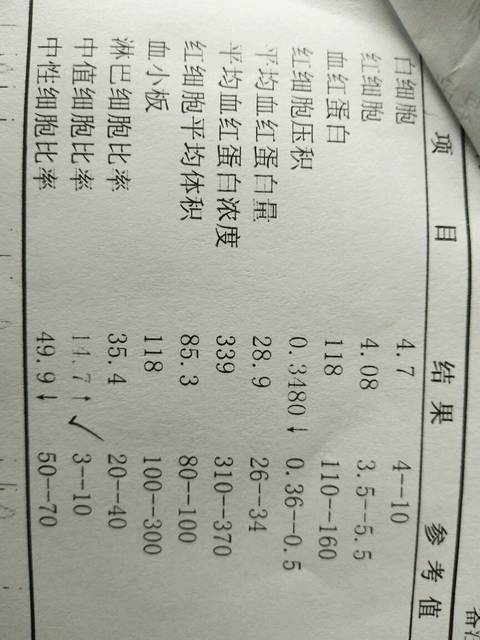 项 目 结 果 参 考 值
白细胞 4.7 4--10
红细胞 4.08 3.5--5.5
血红蛋白 118 110--160
红细胞压积 0.3480↓ 0.36--0.5
平均血红蛋白量 28.9 26--34
平均血红蛋白浓度 339 310--370
红细胞平均体积 85.3 80--100
血小板 118 100--300
淋巴细胞比率 35.4 20--40
中值细胞比率 14.7↑ ✓ 3--10
中性细胞比率 49.9↓ 50--70
备注